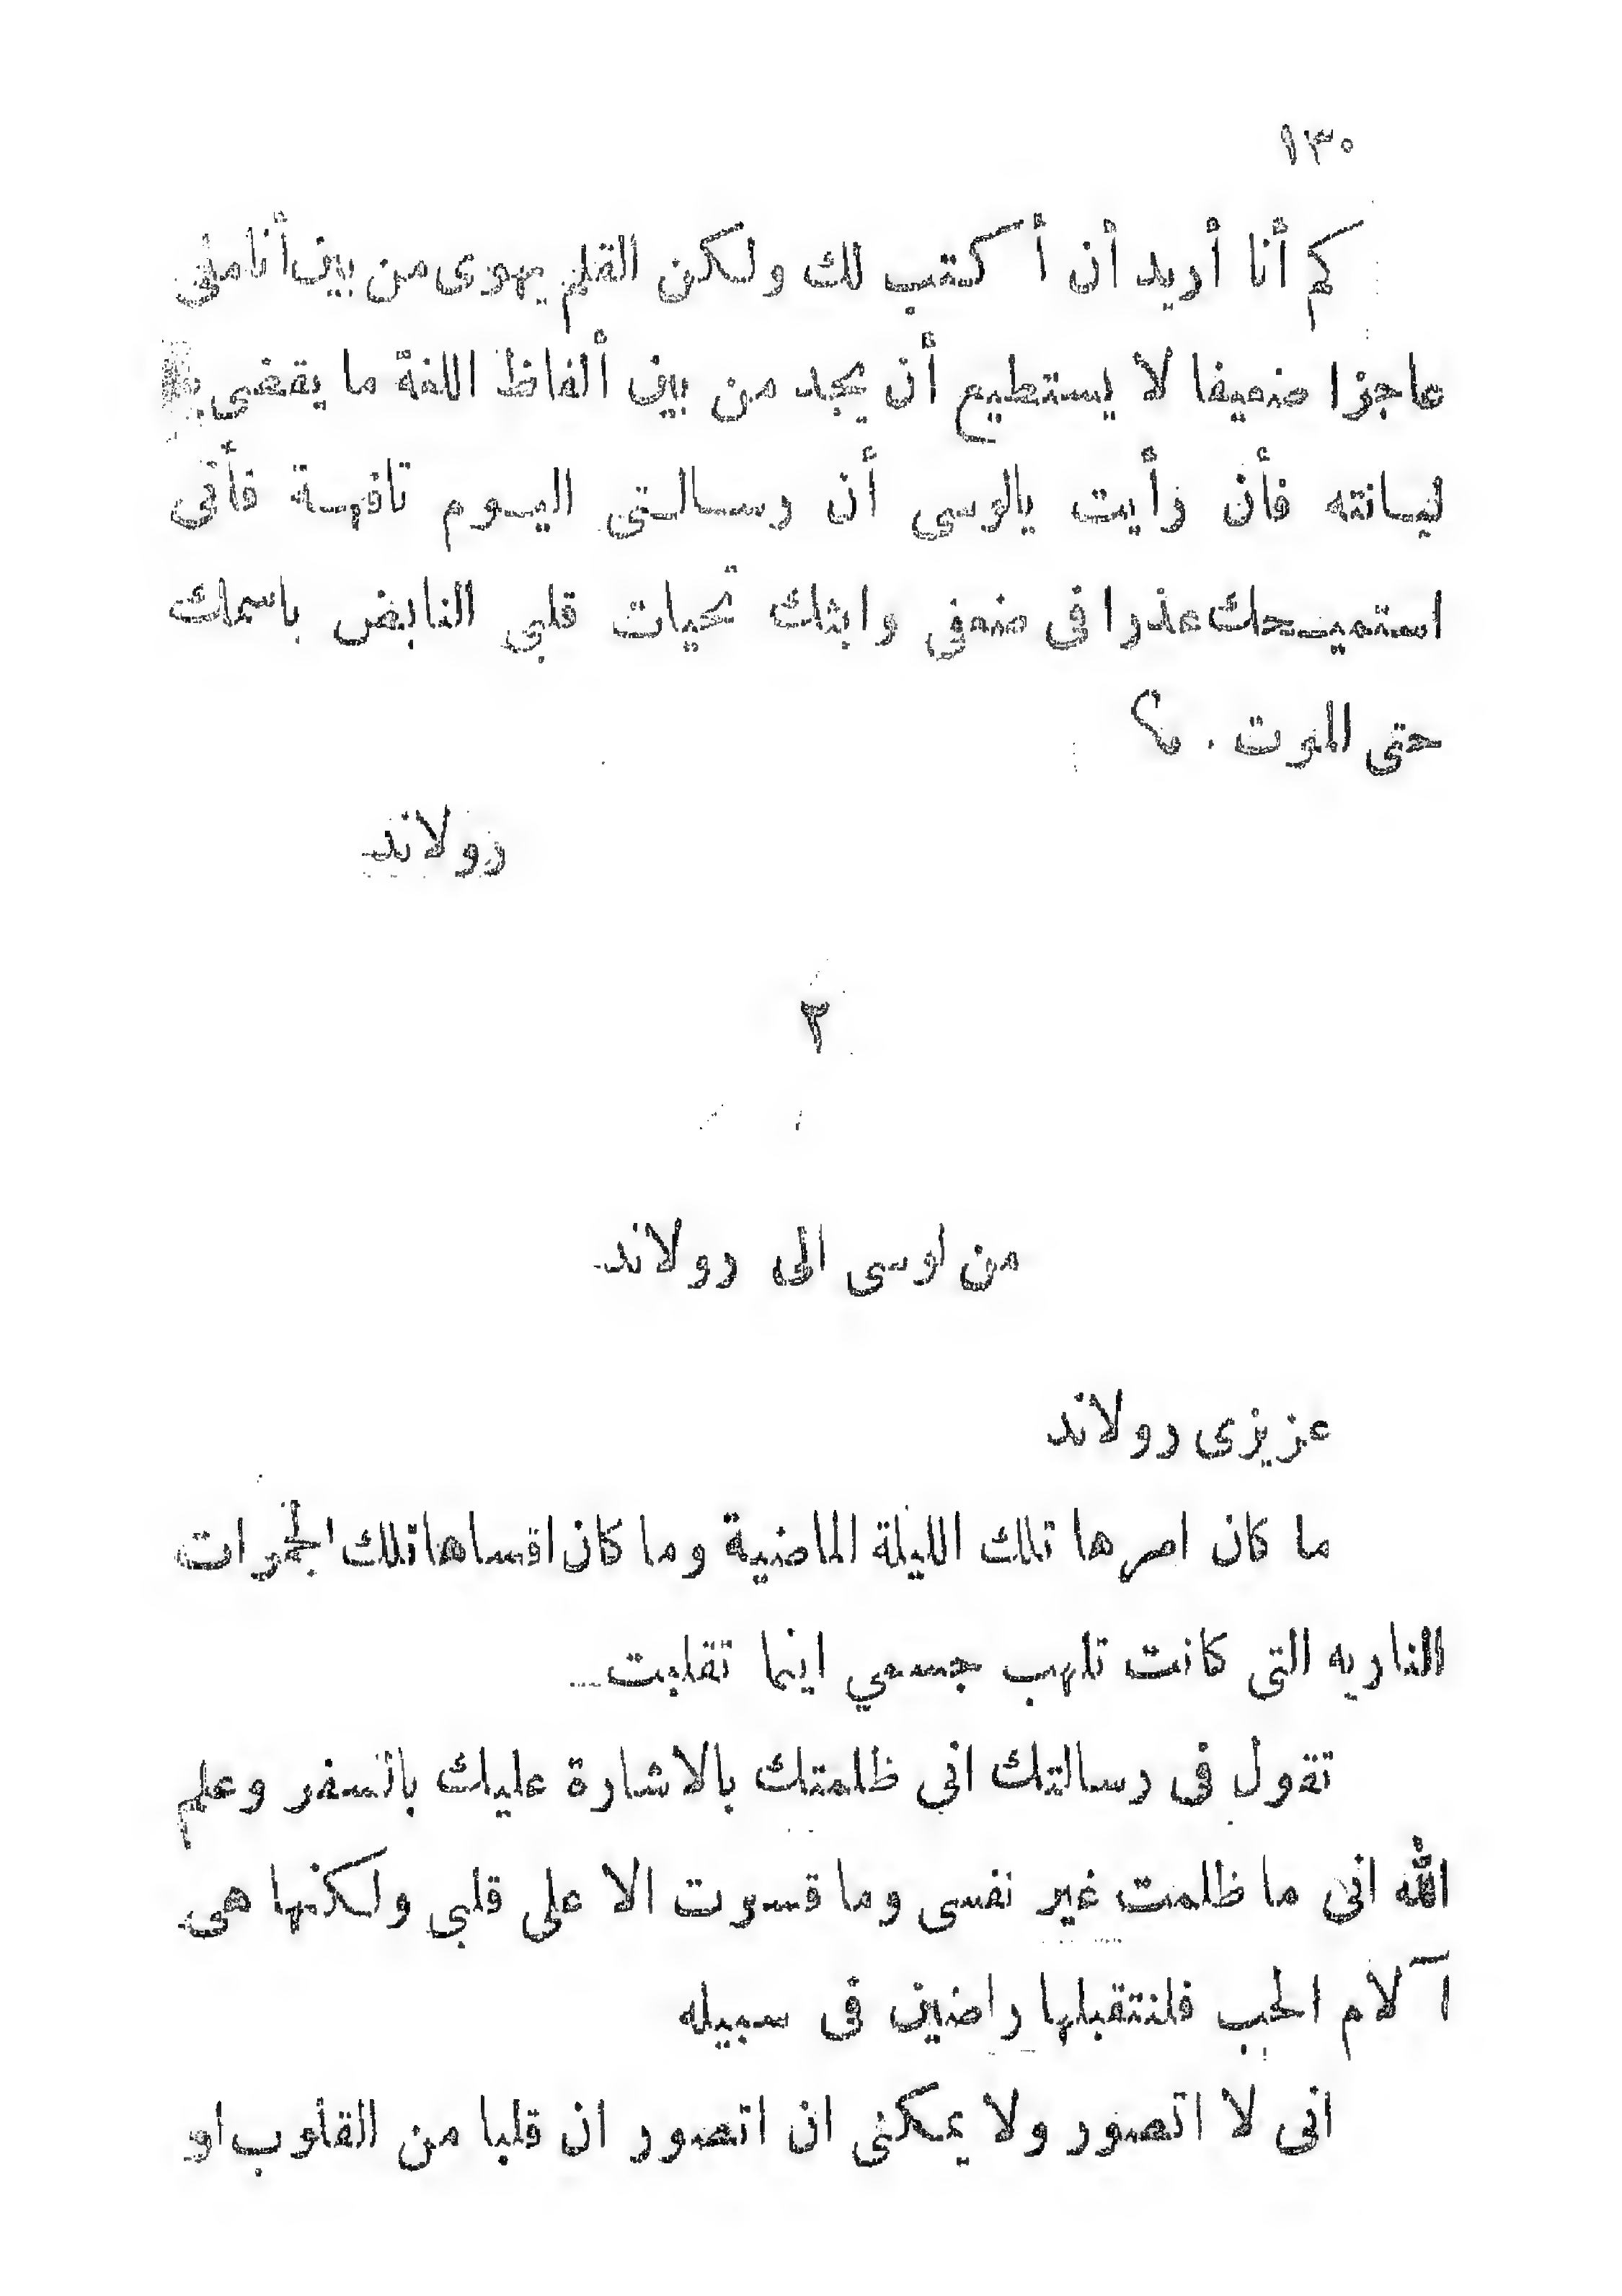 ١٣٠
كم أنا أريد أن أكتب لك ولكن القلم يهوى من بين أناملى
عاجزا ضعيفا لا يستطيع أن يجد من بين ألفاظ اللغة ما يقضى به
لبانته فأن رأيت يالوسى أن رسالتى اليوم تافهة فأنى
استميحك عذرا فى ضعفى وابثك تحيات قلبى النابض باسمك
حتى الموت .
رولاند
٢
من لوسى الى رولاند
عزيزى رولاند
ما كان امرها تلك الليلة الماضية وما كان اقساها تلك الجمرات
الناريه التى كانت تلهب جسمي اينما تقلبت
تقول فى رسالتك انى ظلمتك بالاشارة عليك بالسفر وعلم
الله انى ما ظلمت غير نفسى وما قسوت الا على قلبي ولكنها هى
آلام الحب فلنتقبلها راضين فى سبيله
انى لا اتصور ولا يمكنى ان اتصور ان قلبا من القلوب او